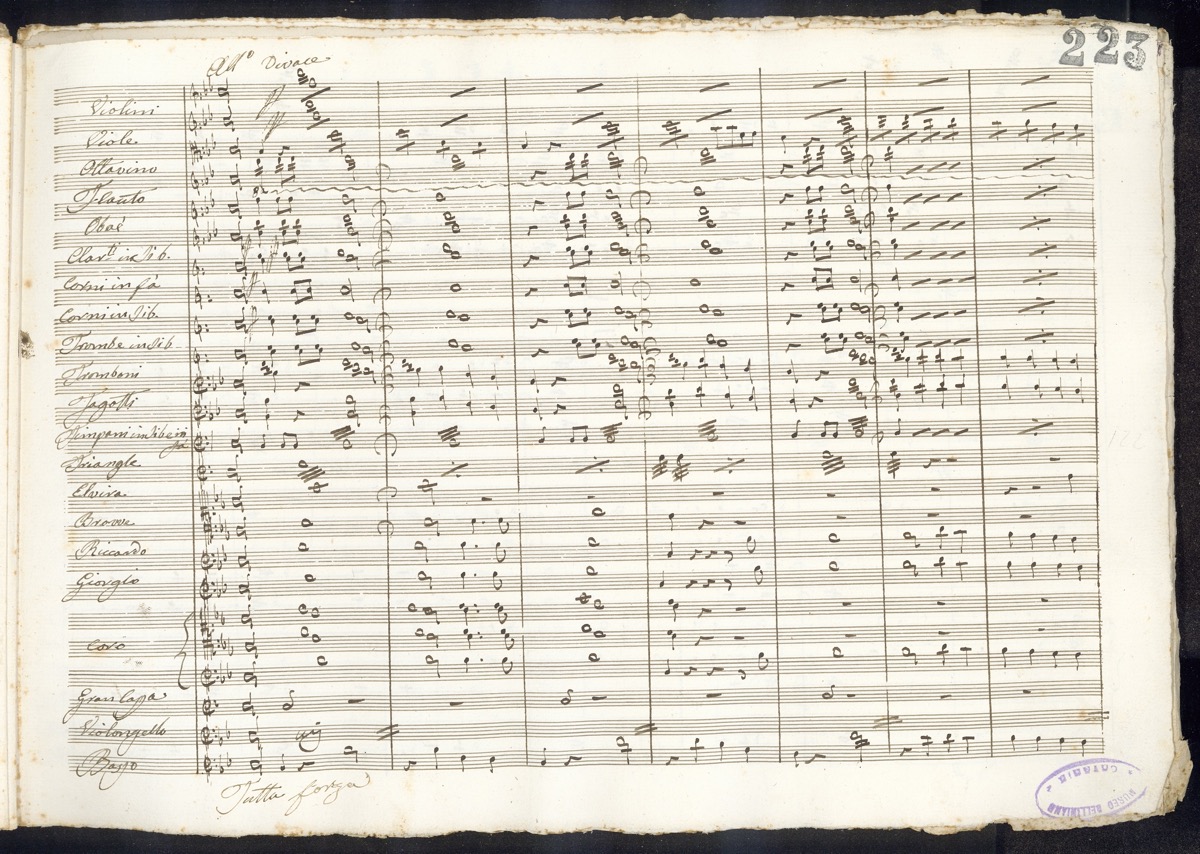 223
All° Vivace
Violini
Viole
Ottavino
Flauto
Oboè
Clar.ti in Sib.
Corni in fà
Corni in Sib.
Trombe in Sib
Tromboni
Fagotti
Timpani in Sib e in fa
Triangle
Elvira
Brovve
Riccardo
Giorgio
Coro
Gran Cassa
Violongello
Basso
Tutta forza
MUSEO BELLINIANO
CATANIA